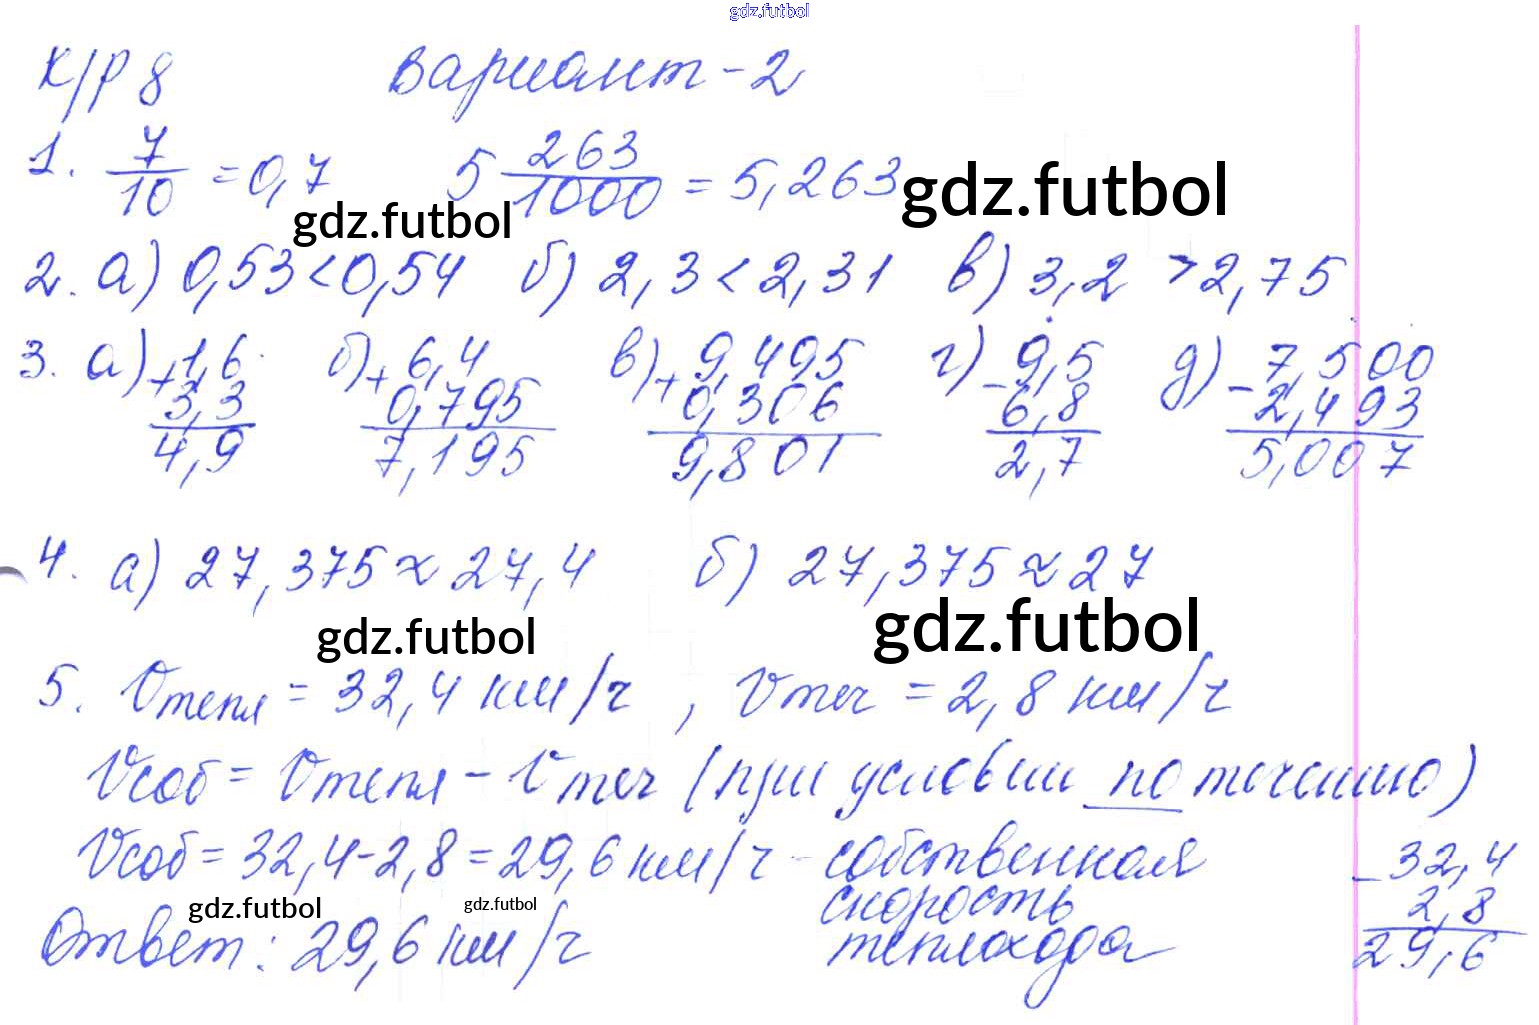 gdz.futbol
К/Р 8 Вариант-2
1. 7/10 = 0,7 5 263/1000 = 5,263 gdz.futbol
gdz.futbol
2. а) 0,53 < 0,54 б) 2,3 < 2,31 в) 3,2 > 2,75
3. а) + 1,6 б) + 6,4 в) + 9,495 г) - 9,5 д) - 7,500
3,3 0,795 0,306 6,8 2,493
4,9 7,195 9,801 2,7 5,007
4. а) 27,375 ≈ 27,4 б) 27,375 ≈ 27
gdz.futbol gdz.futbol
5. Vтепл = 32,4 км/ч , Vтеч = 2,8 км/ч
Vсоб = Vтепл - Vтеч (при условии по течению)
Vсоб = 32,4-2,8 = 29,6 км/ч - собственная - 32,4
gdz.futbol gdz.futbol скорость 2,8
Ответ: 29,6 км/ч теплохода 29,6